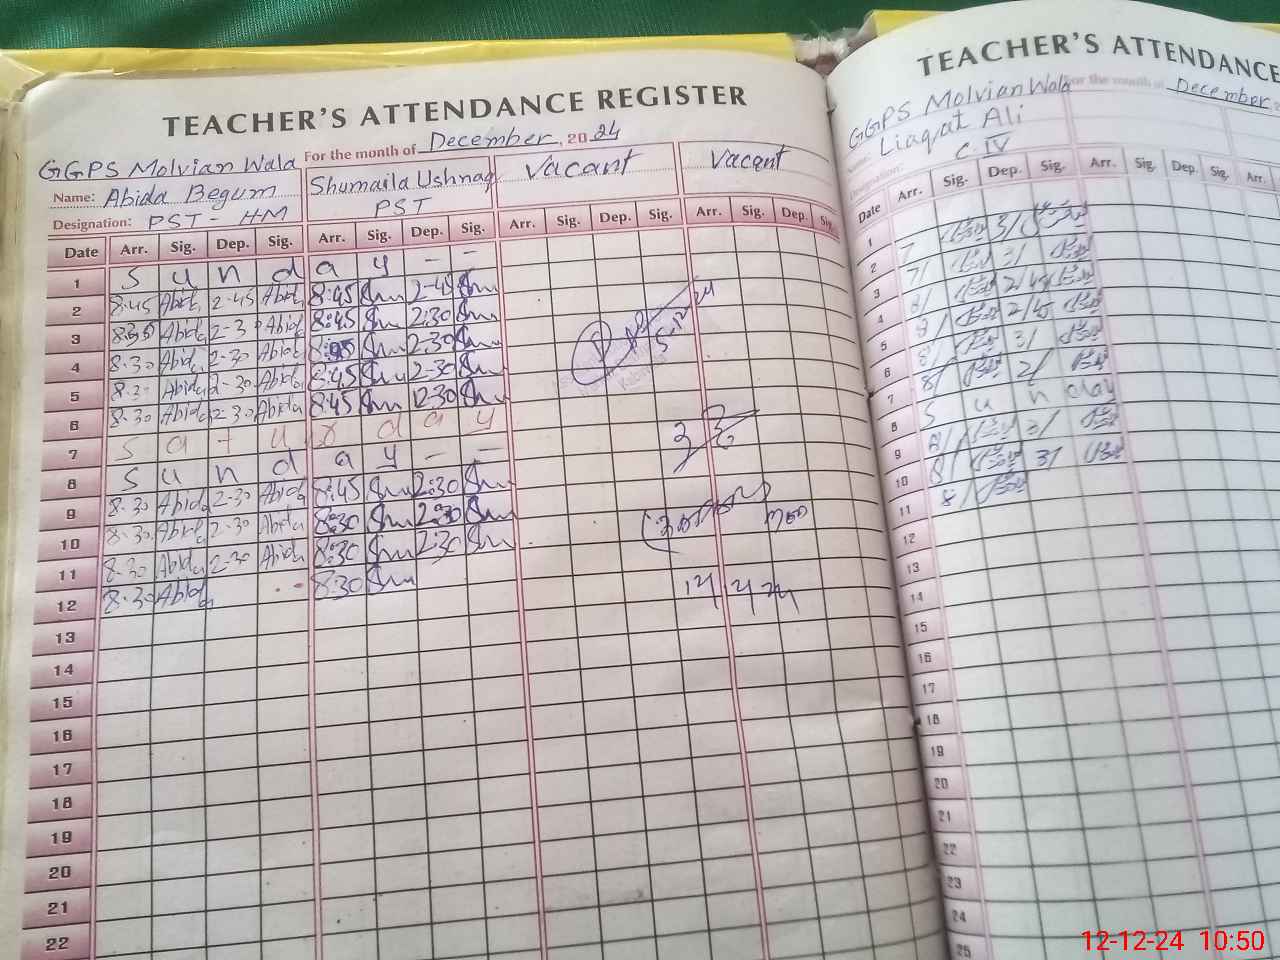 TEACHER'S ATTENDANCE REGISTER
For the month of December, 2024
GGPS Molvian Wala
Name: Abida Begum
Shumaila Ushnaq
Vacant
Vacant
Designation: PST - HM
PST
Date Arr. Sig. Dep. Sig. Arr. Sig. Dep. Sig. Arr. Sig. Dep. Sig. Arr. Sig. Dep. Sig.
1 S u n d a y - -
2 8:45 Abida 2-45 Abida 8:45 Shu 2-45 Shu
3 Abida 2-3 Abida 8:45 Shu 2:30 Shu
4 8.30 Abida 2-30 Abida Shu 2:30 Shu
5 Abida 2-30 Abida 8:45 Shu 2-30 Shu
5-12-24
6 8-30 Abida 2-30 Abida 8:45 Shu 2:30 Shu
7 S a t u r d a y
8 S u n d a y - -
9 8-30 Abida 2-30 Abida 8:45 Shu 2:30 Shu
10 8-30 Abida 2-30 Abida 8:30 Shu 2:30 Shu
11 8-30 Abida 2-30 Abida 8:30 Shu 2:30 Shu
12 8-30 Abida 8:30 Shu
13
14
15
16
17
18
19
20
21
22
TEACHER'S ATTENDANCE
For the month of December
GGPS Molvian Wala
Name: Liaqat Ali
Designation: C. IV
Date Arr. Sig. Dep. Sig. Arr. Sig. Dep. Sig. Arr.
1
2 7 3/
3 7/ 3/
4 8/ 2/45
5 8/ 2/45
6 8/ 3/
7 8/ 2/
8 S u n day
9 8/ 3/
10 8/ 3/
11 8/
12
13
14
15
16
17
18
19
20
21
22
23
24
25
12-12-24 10:50